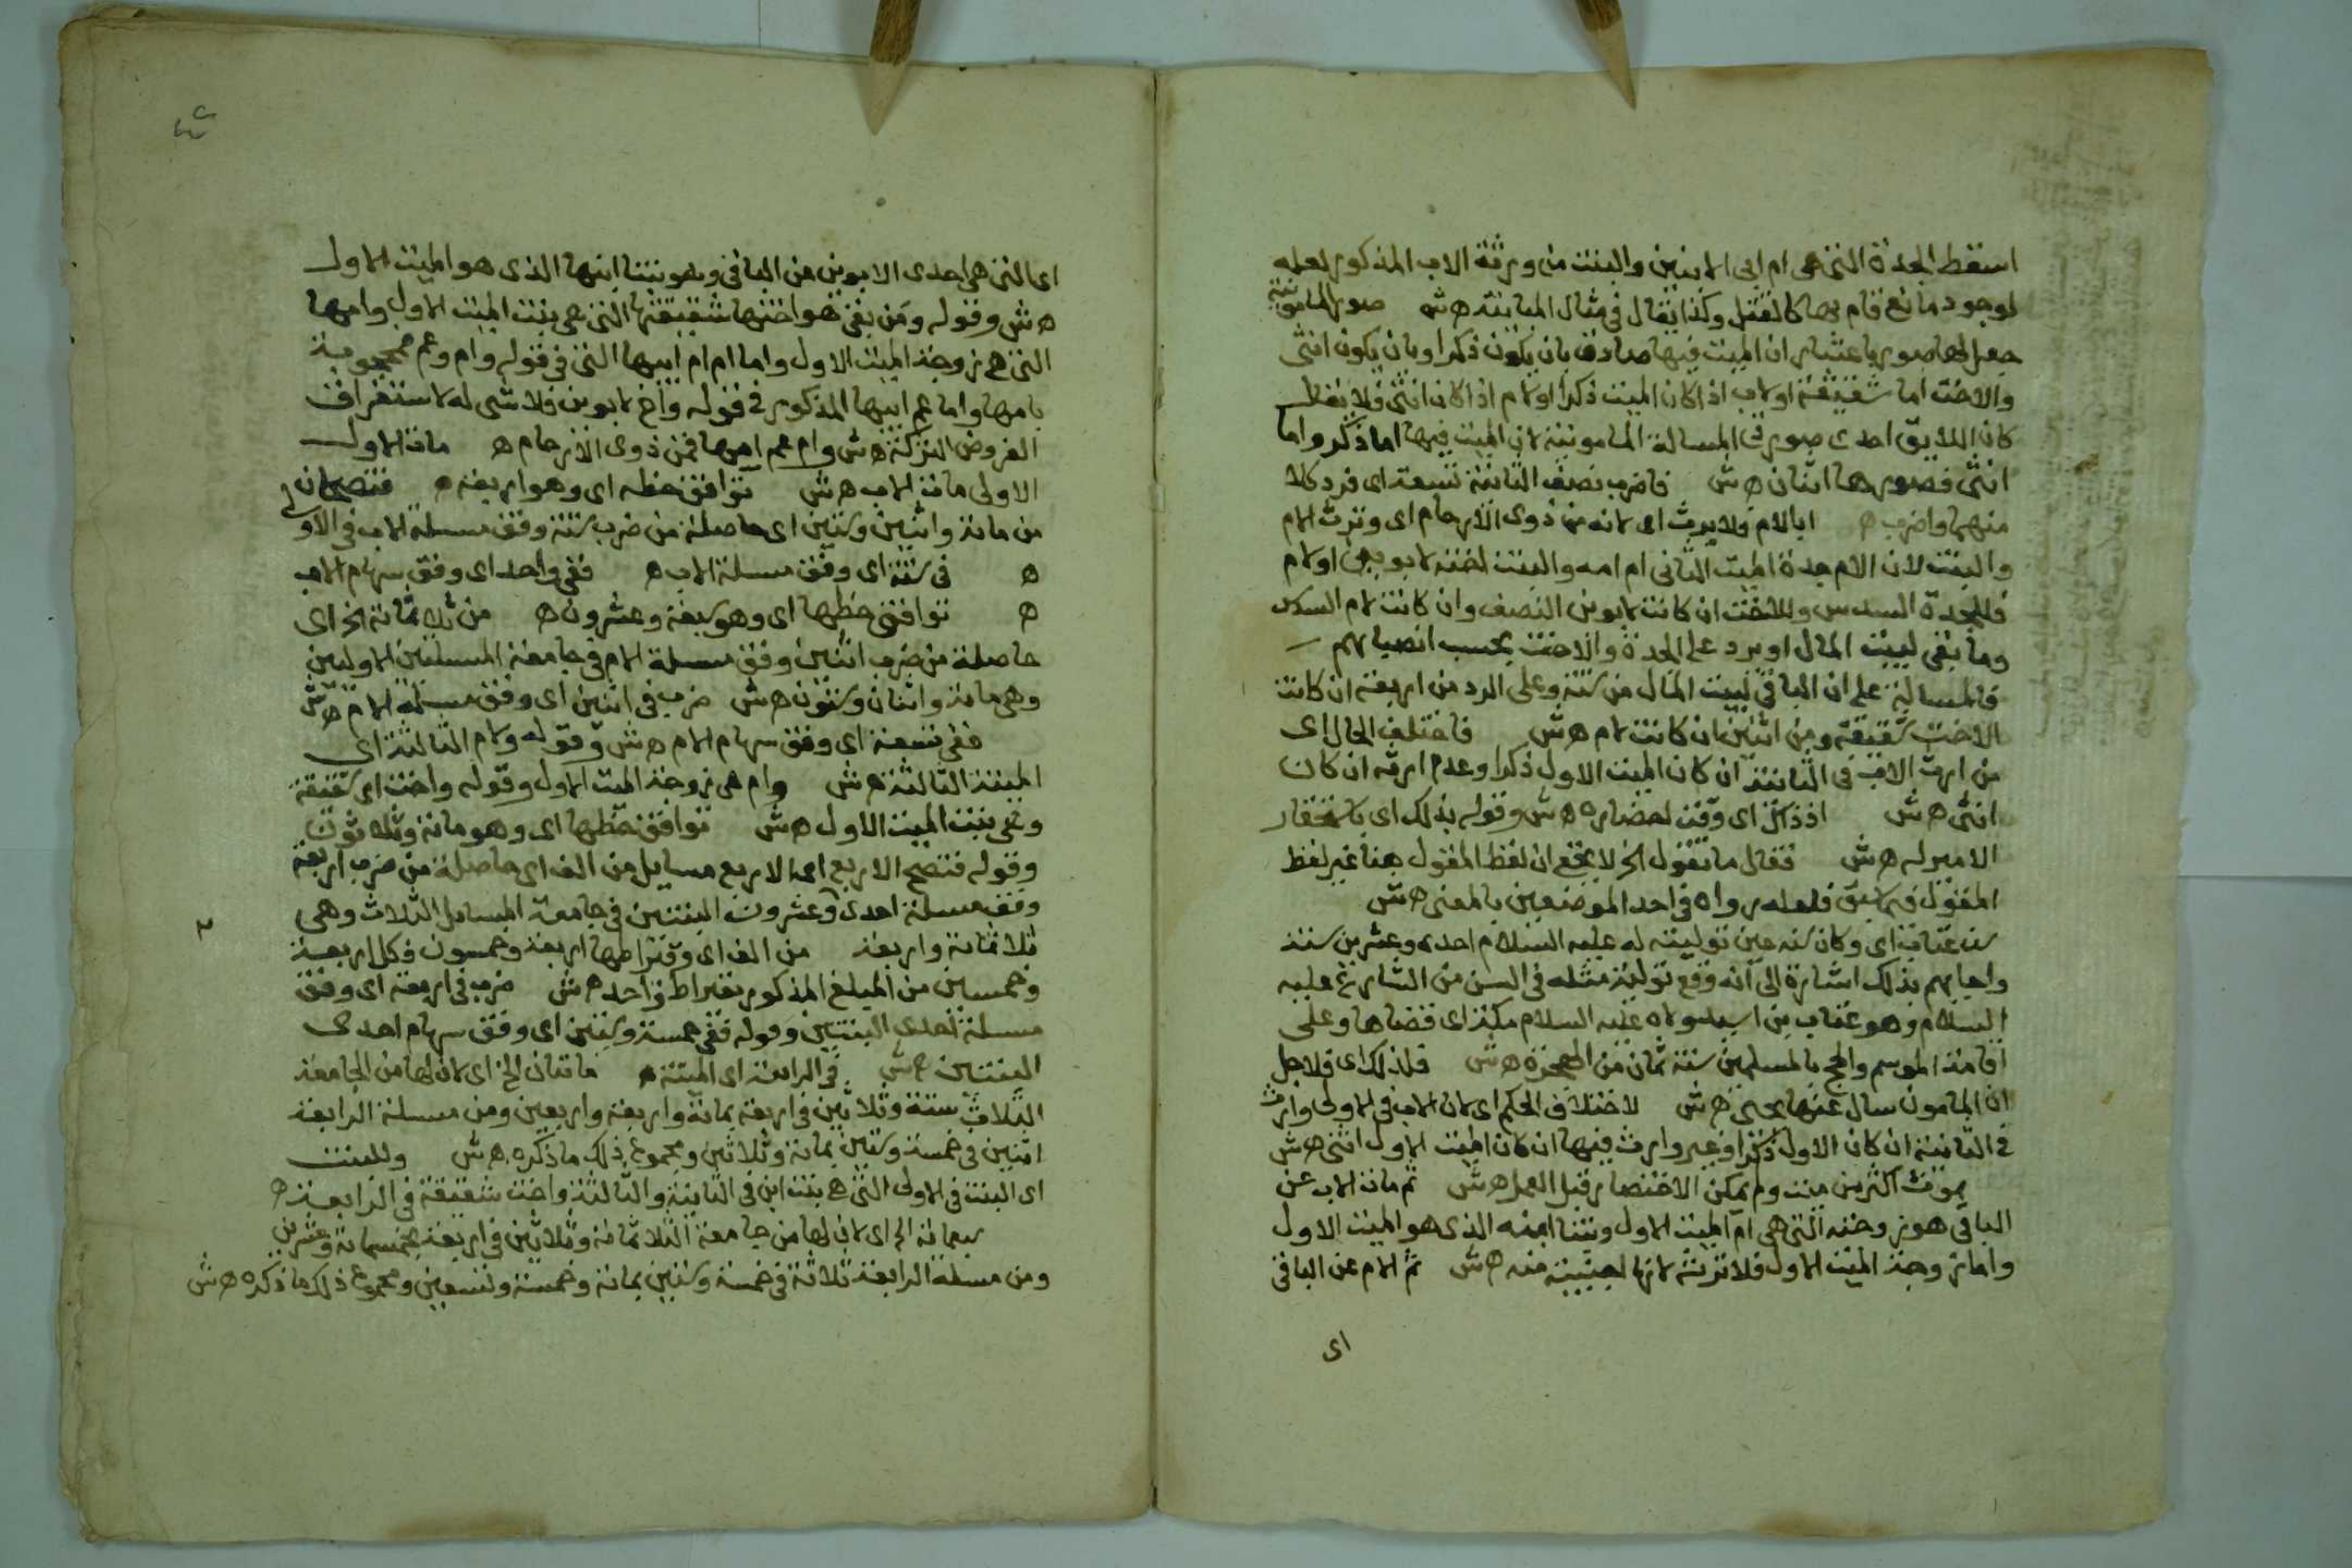 اسقط الجدة التي هي ام ابي الابنين والبنت من ورثة الاب المذكور لعله
لوجود مانع قام بها كالقتل وكذا يقال في مثال المباينة ه ش صور المامونية
جعل لها صور باعتبار ان الميت فيها صادق بان يكون ذكرا وبان يكون انثى
والاخت اما شقيقة او لاب اذا كان الميت ذكرا او لام اذا كان انثى فلا يقال
كان اللايق احدى صورتى المسالة المامونية لان الميت فيها اما ذكر واما
انثى فصورها اثنان ه ش فاضرب نصف الثانية تسعة اى فرد كلا
منهما واضرب ه ابا لام ولا يرث اى لانه من ذوى الارحام اى وترث الام
والبنت لان الام جدة الميت الثاني ام امه والبنت اخته لابوين او لام
فللجدة السدس وللاخت ان كانت لابوين النصف وان كانت لام السدس
وما بقى لبيت المال او يرد على الجدة والاخت بحسب انصبائهم
فالمسالة على ان الباقى لبيت المال من ستة وعلى الرد من اربعة ان كانت
الاخت شقيقة ومن اثنين ان كانت لام ه ش فاختلف الحال اى
من ارث الاب فى الثانية ان كان الميت الاول ذكرا وعدم ارثه ان كان
انثى ه ش اذ ذاك اى وقت احضاره ه ش وقوله بذلك اى باستحقار
الامير له ه ش فقال ما تقول الخ لا يخفى ان لفظ المقول هنا غير لفظ
المقول فيما سبق فلعله رواه فى احد الموضعين بالمعنى ه ش
سن عتاب اى وكان سنه حين توليته له عليه السلام احدى وعشرين سنة
واجابهم بذلك اشارة الى انه وقع تولية مثله فى السن من الشارع عليه
السلام وهو عتاب بن اسيد ولاه عليه السلام مكة اى قضاها وعلى
اقامة الموسم والحج بالمسلمين سنة ثمان من الهجرة ه ش فلذلك اى فلاجل
ان المامون سال عنها يحيى ه ش لاختلاف الحكم اى لان الاب فى الاولى وارث
فى الثانية ان كان الاول ذكرا وغير وارث فيها ان كان الميت الاول انثى ه ش
بموت اكثر من ميت ولم يمكن الاختصار قبل العمل ه ش ثم مات الاب عن
الباقى هو زوجته التى هى ام الميت الاول وبنتا ابنه الذى هو الميت الاول
واما زوجة الميت الاول فلا ترثه لانها اجنبية منه ه ش ثم الام عن الباقى
اى
اى التى هى احدى الابوين من الباقى وهو بنتا ابنها الذى هو الميت الاول
ه ش وقوله ومن بقى هو اختها شقيقتها التى هى بنت الميت الاول وامها
التى هى زوجة الميت الاول واما ام ام ابيها التى فى قوله وام وعم محجوبة
بامها واما عم ابيها المذكور فى قوله واخ لابوين فلا شى له لاستغراق
الفروض التركة ه ش وام عم امها فمن ذوى الارحام ه مات الاول
الاولى مات الاب ه ش توافق حظه اى وهو اربعة ه فتصحان
من مائة واثنين وستين اى حاصلة من ضرب ستة وفق مسلة الاب فى الاولى
ه فى ستة اى وفق مسلة الاب ه ففى واحد اى وفق سهام الاب
ه توافق حظها اى وهو سبعة وعشرون ه من ثلاثمائة الخ اى
حاصلة من ضرب اثنين وفق مسلة الام فى جامعة المسلتين الاوليين
وهى مائة واثنان وستون ه ش ضرب فى اثنين اى وفق مسلة الام ه ش
ففى تسعة اى وفق سهام الام ه ش وقوله ولام الثالثة اى
الميتة الثالثة ه ش وام هى زوجة الميت الاول وقوله واخت اى شقيقة
وهى بنت الميت الاول ه ش توافق حظها اى وهو مائة وثلاثون
وقوله فتصح الاربع اى الاربع مسايل من الف اى حاصلة من ضرب اربعة
وفق مسلة احدى وعشرون البنتين فى جامعة المسايل الثلاث وهى
ثلاثمائة واربعة من الف اى وقيراطها اربعة وخمسون فكل اربعة
وخمسين من المبلغ المذكور بقيراط واحد ه ش ضرب فى اربعة اى وفق
مسلة احدى البنتين وقوله ففى خمسة وستين اى وفق سهام احدى
البنتين ه ش فى الرابعة اى الميتة ه مائتان الخ اى لان لها من الجامعة
الثلاث ستة وثلاثين فى اربعة بمائة واربعة واربعين ومن مسلة الرابعة
اثنين فى خمسة وستين بمائة وثلاثين ومجموع ذلك ما ذكره ه ش وللبنت
اى البنت فى الاولى التى هى بنت ابن فى الثانية والثالثة واخت شقيقة فى الرابعة ه
سبعمائة الخ اى لان لها من جامعة الثلاث مائة وثلاثين فى اربعة بخمسمائة وعشرين
ومن مسلة الرابعة ثلاثة فى خمسة وستين بمائة وخمسة وتسعين ومجموع ذلك ما ذكره ه ش